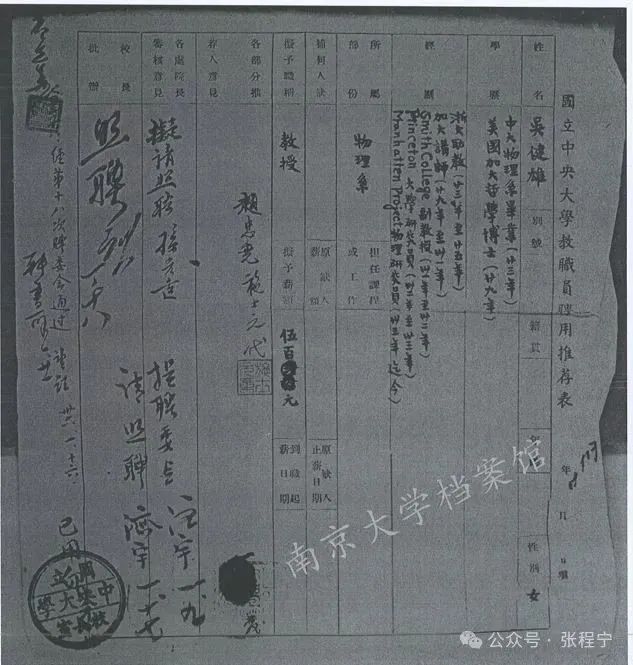 國立中央大學教職員聘用推荐表
年 月 日填
姓名 吳健雄 別號 籍貫 年齡 性別 女
學歷 中大物理系畢業(廿三年)
美國加大哲學博士(廿九年)
經歷 浙大助教(廿三年至廿五年)
加大講師(廿九年至卅一年)
Smith College 副教授(卅一年至卅二年)
Princeton 大學研究員(卅二年至卅三年)
Manhatten Project物理研究員(卅三年迄今)
所屬部份 物理系 擔任課程或工作
補何人缺 原缺人薪額 原缺人止薪日期
擬予職稱 教授 擬予薪額 伍百元 到職起薪日期
各部分推荐人意見 趙忠堯 施士元代
各處院長審核意見 擬請照聘 孫光遠
提聘委會 一、九
校長批辦 照聘
請照聘 濟宇 一、十七
經第十八次聘委會通過
卅六、一、十六
已用
國立中央大學校長室
南京大学档案馆
公众号·张程宁